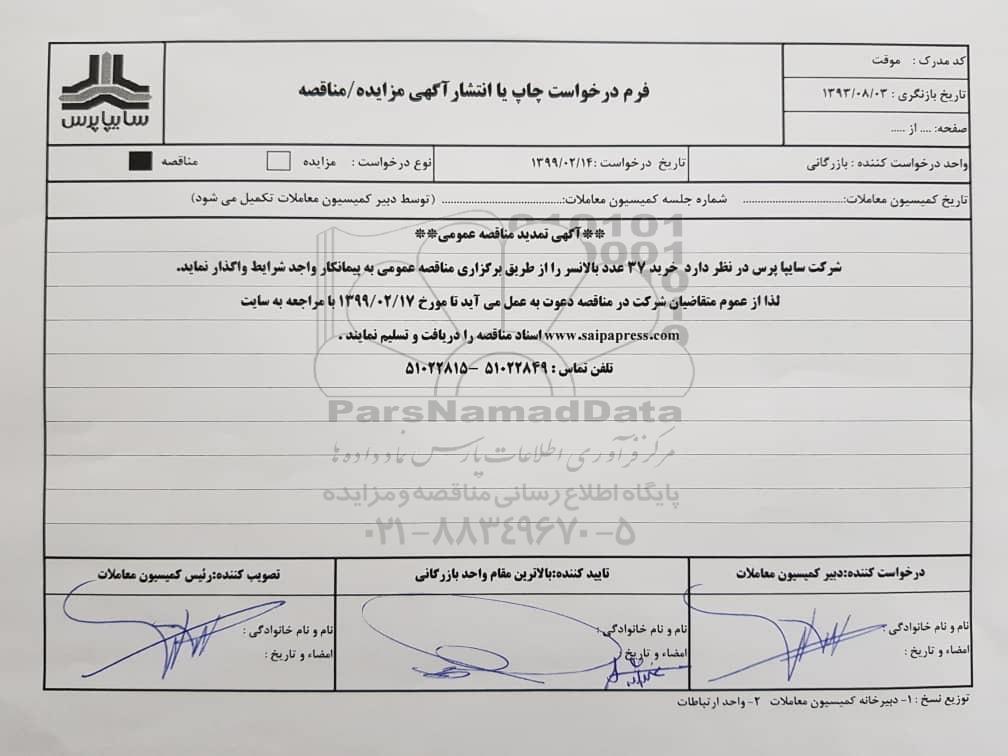 سایپا پرس
فرم درخواست چاپ یا انتشار آگهی مزایده/مناقصه
کد مدرک : موقت
تاریخ بازنگری : ۱۳۹۳/۰۸/۰۳
صفحه: .... از .....
واحد درخواست کننده : بازرگانی
تاریخ درخواست :۱۳۹۹/۰۲/۱۴
نوع درخواست : مزایده مناقصه
تاریخ کمیسیون معاملات:............................... شماره جلسه کمیسیون معاملات:..................................... (توسط دبیر کمیسیون معاملات تکمیل می شود)
**آگهی تمدید مناقصه عمومی**
شرکت سایپا پرس در نظر دارد خرید ۳۷ عدد بالانسر را از طریق برگزاری مناقصه عمومی به پیمانکار واجد شرایط واگذار نماید.
لذا از عموم متقاضیان شرکت در مناقصه دعوت به عمل می آید تا مورخ ۱۳۹۹/۰۲/۱۷ با مراجعه به سایت
www.saipapress.com اسناد مناقصه را دریافت و تسلیم نمایند .
تلفن تماس : ۵۱۰۲۲۸۴۹ – ۵۱۰۲۲۸۱۵
ParsNamadData
مرکز فرآوری اطلاعات پارس نماد داده ها
پایگاه اطلاع رسانی مناقصه و مزایده
۰۲۱-۸۸۳۴۹۶۷۰-۵
درخواست کننده:دبیر کمیسیون معاملات
نام و نام خانوادگی :
امضاء و تاریخ :
تایید کننده:بالاترین مقام واحد بازرگانی
نام و نام خانوادگی :
امضاء و تاریخ :
تصویب کننده:رئیس کمیسیون معاملات
نام و نام خانوادگی :
امضاء و تاریخ :
توزیع نسخ : ۱- دبیرخانه کمیسیون معاملات ۲- واحد ارتباطات